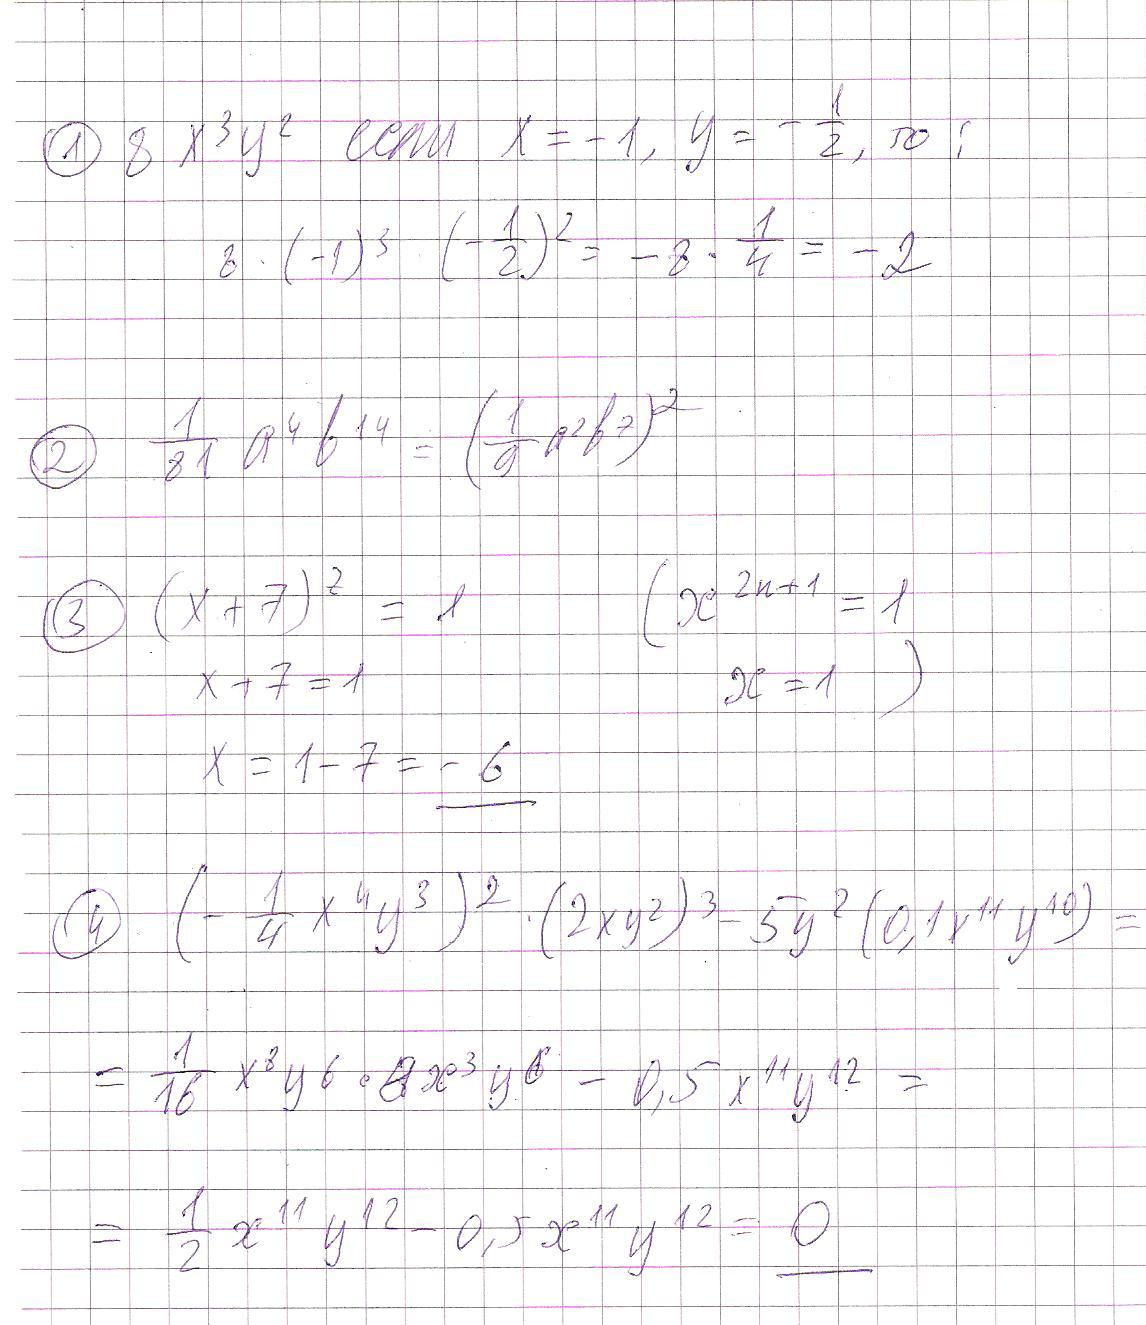 ① 8 x³y² если x = -1, y = -1/2, то:
8 · (-1)³ · (-1/2)² = -8 · 1/4 = -2
② 1/81 a⁴b¹⁴ = (1/9 a²b⁷)²
③ (x + 7)² = 1 (x²ⁿ⁺¹ = 1
x + 7 = 1 x = 1 )
x = 1 - 7 = -6
④ (-1/4 x⁴y³)² · (2xy²)³ - 5y² (0,1x¹¹y¹⁰) =
= 1/16 x⁸y⁶ · 8x³y⁶ - 0,5x¹¹y¹² =
= 1/2 x¹¹y¹² - 0,5x¹¹y¹² = 0